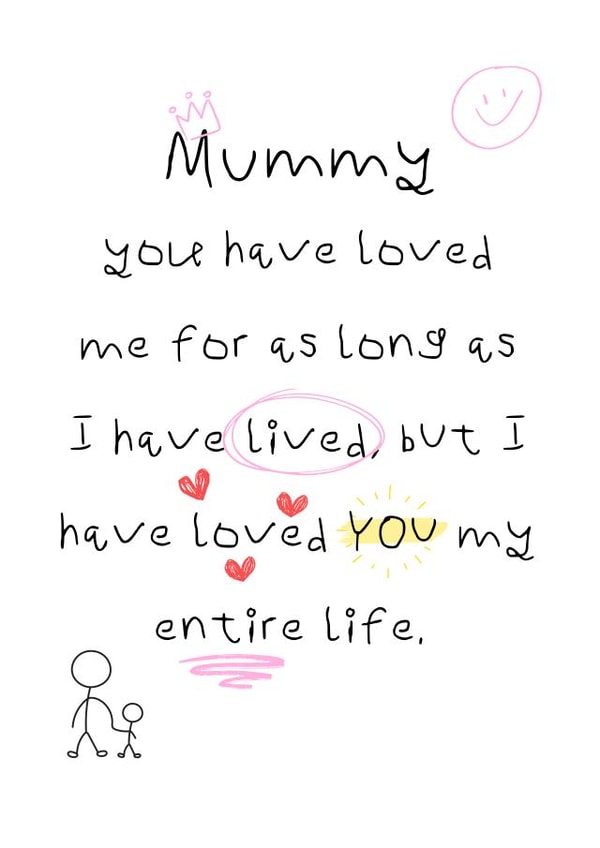 Mummy
you have loved
me for as long as
I have lived, but I
have loved YOU my
entire life.